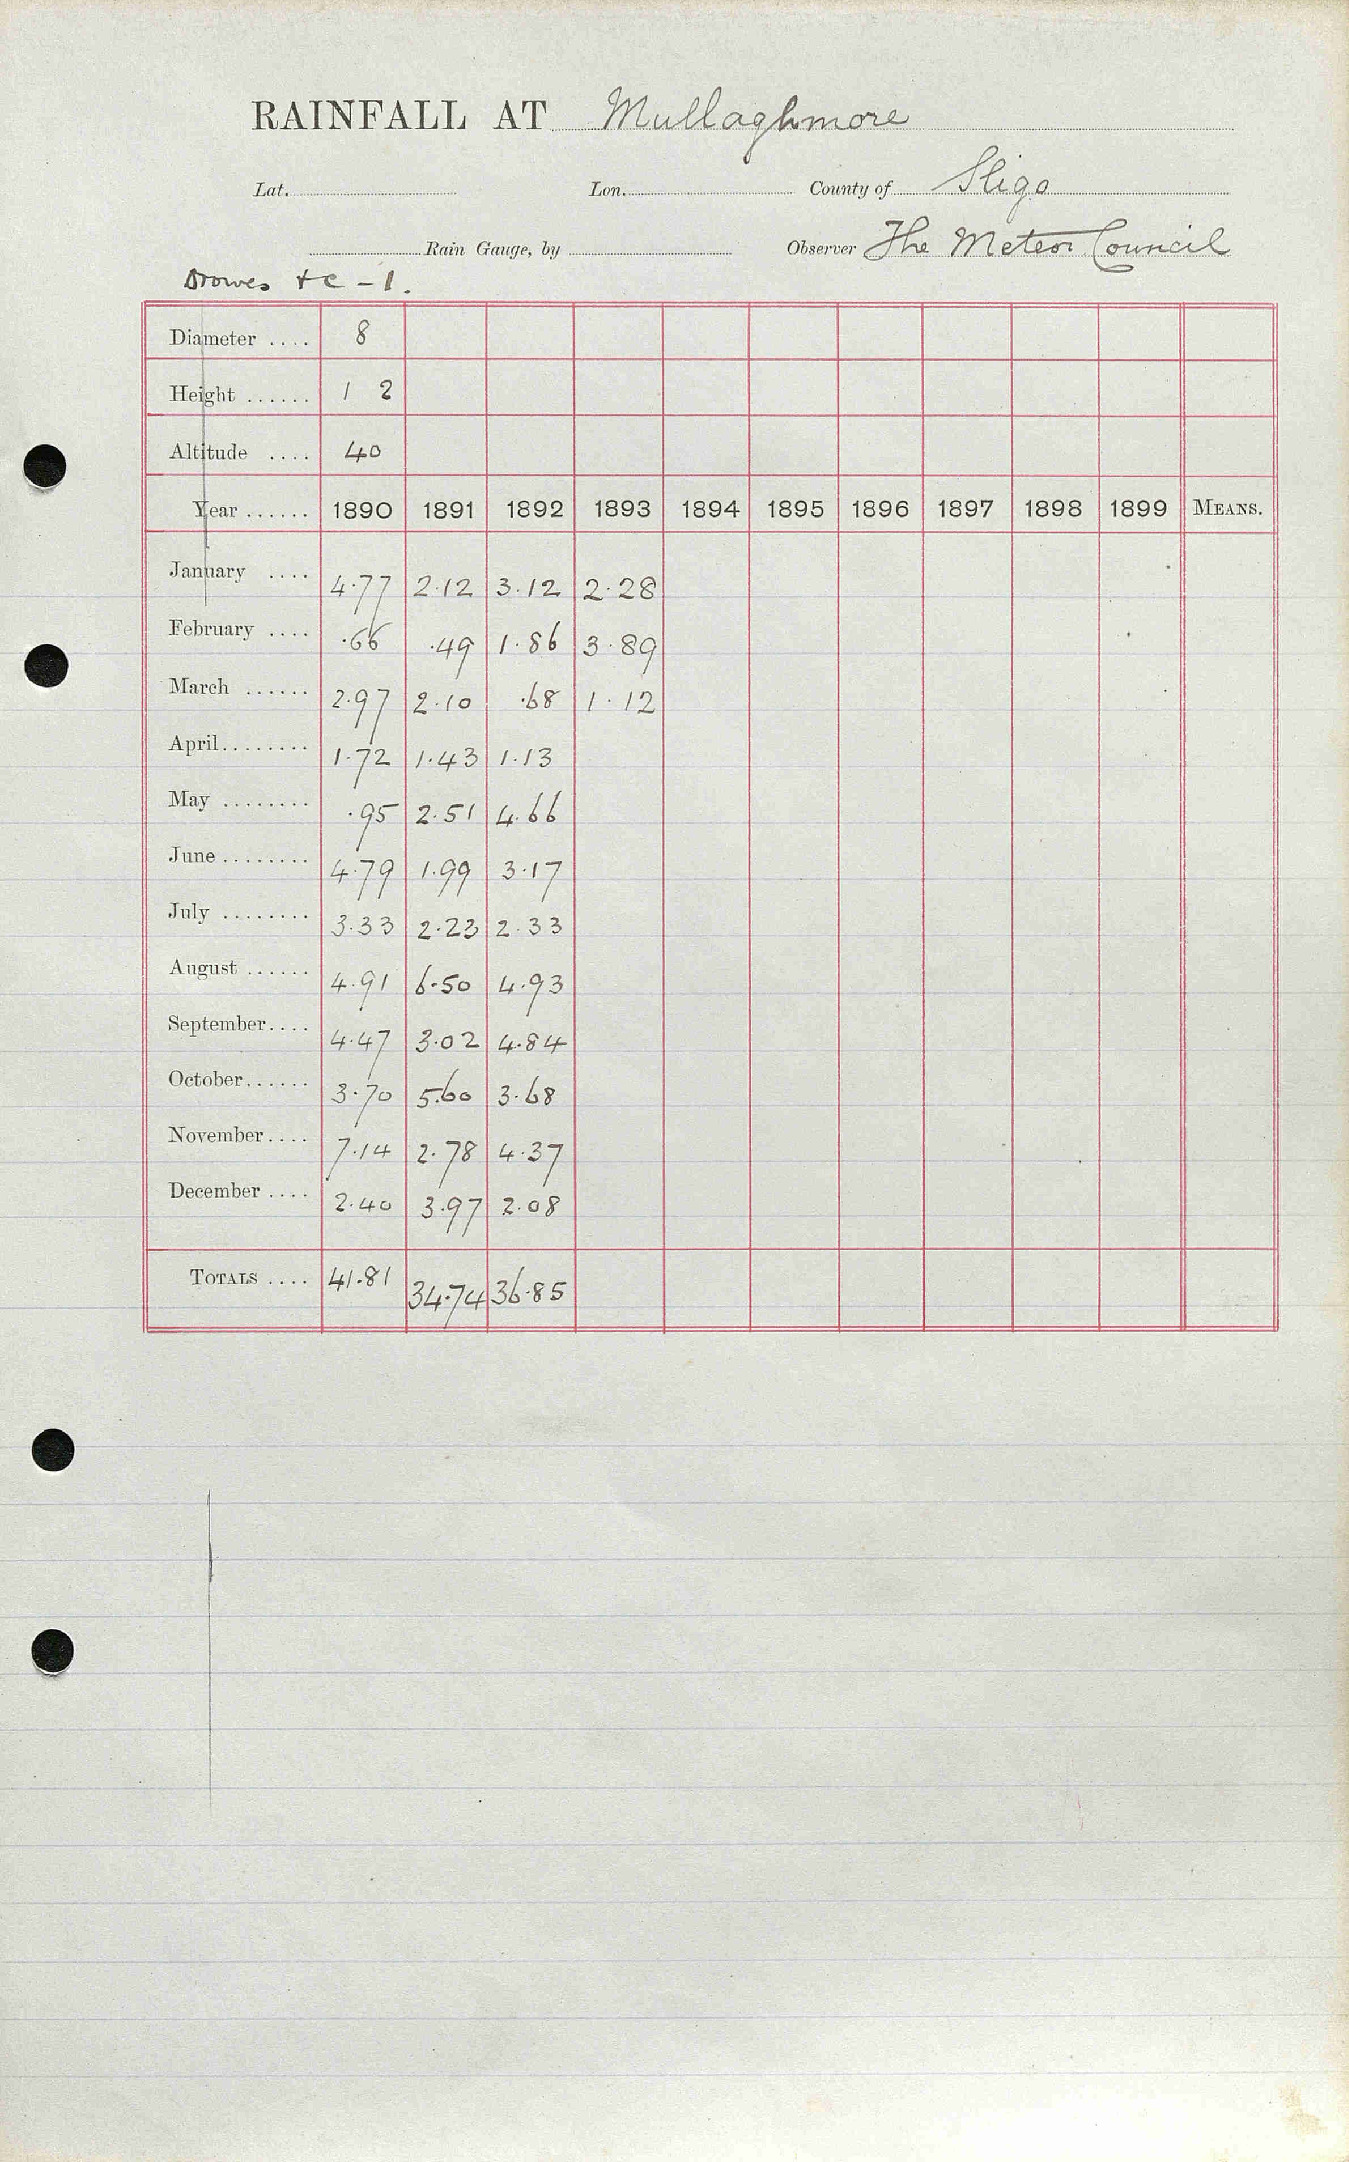 RAINFALL AT Mullaghmore
Lat. Lon. County of Sligo
Rain Gauge, by Observer The Meteor. Council
Drowes &c - 1.
Diameter .... 8
Height ...... 1 2
Altitude .... 40
Year ...... 1890 1891 1892 1893 1894 1895 1896 1897 1898 1899 MEANS.
January .... 4.77 2.12 3.12 2.28
February .... .66 .49 1.86 3.89
March ...... 2.97 2.10 .68 1.12
April........ 1.72 1.43 1.13
May ........ .95 2.51 4.66
June ........ 4.79 1.99 3.17
July ........ 3.33 2.23 2.33
August ...... 4.91 6.50 4.93
September.... 4.47 3.02 4.84
October...... 3.70 5.60 3.68
November.... 7.14 2.78 4.37
December .... 2.40 3.97 2.08
TOTALS .... 41.81 34.74 36.85